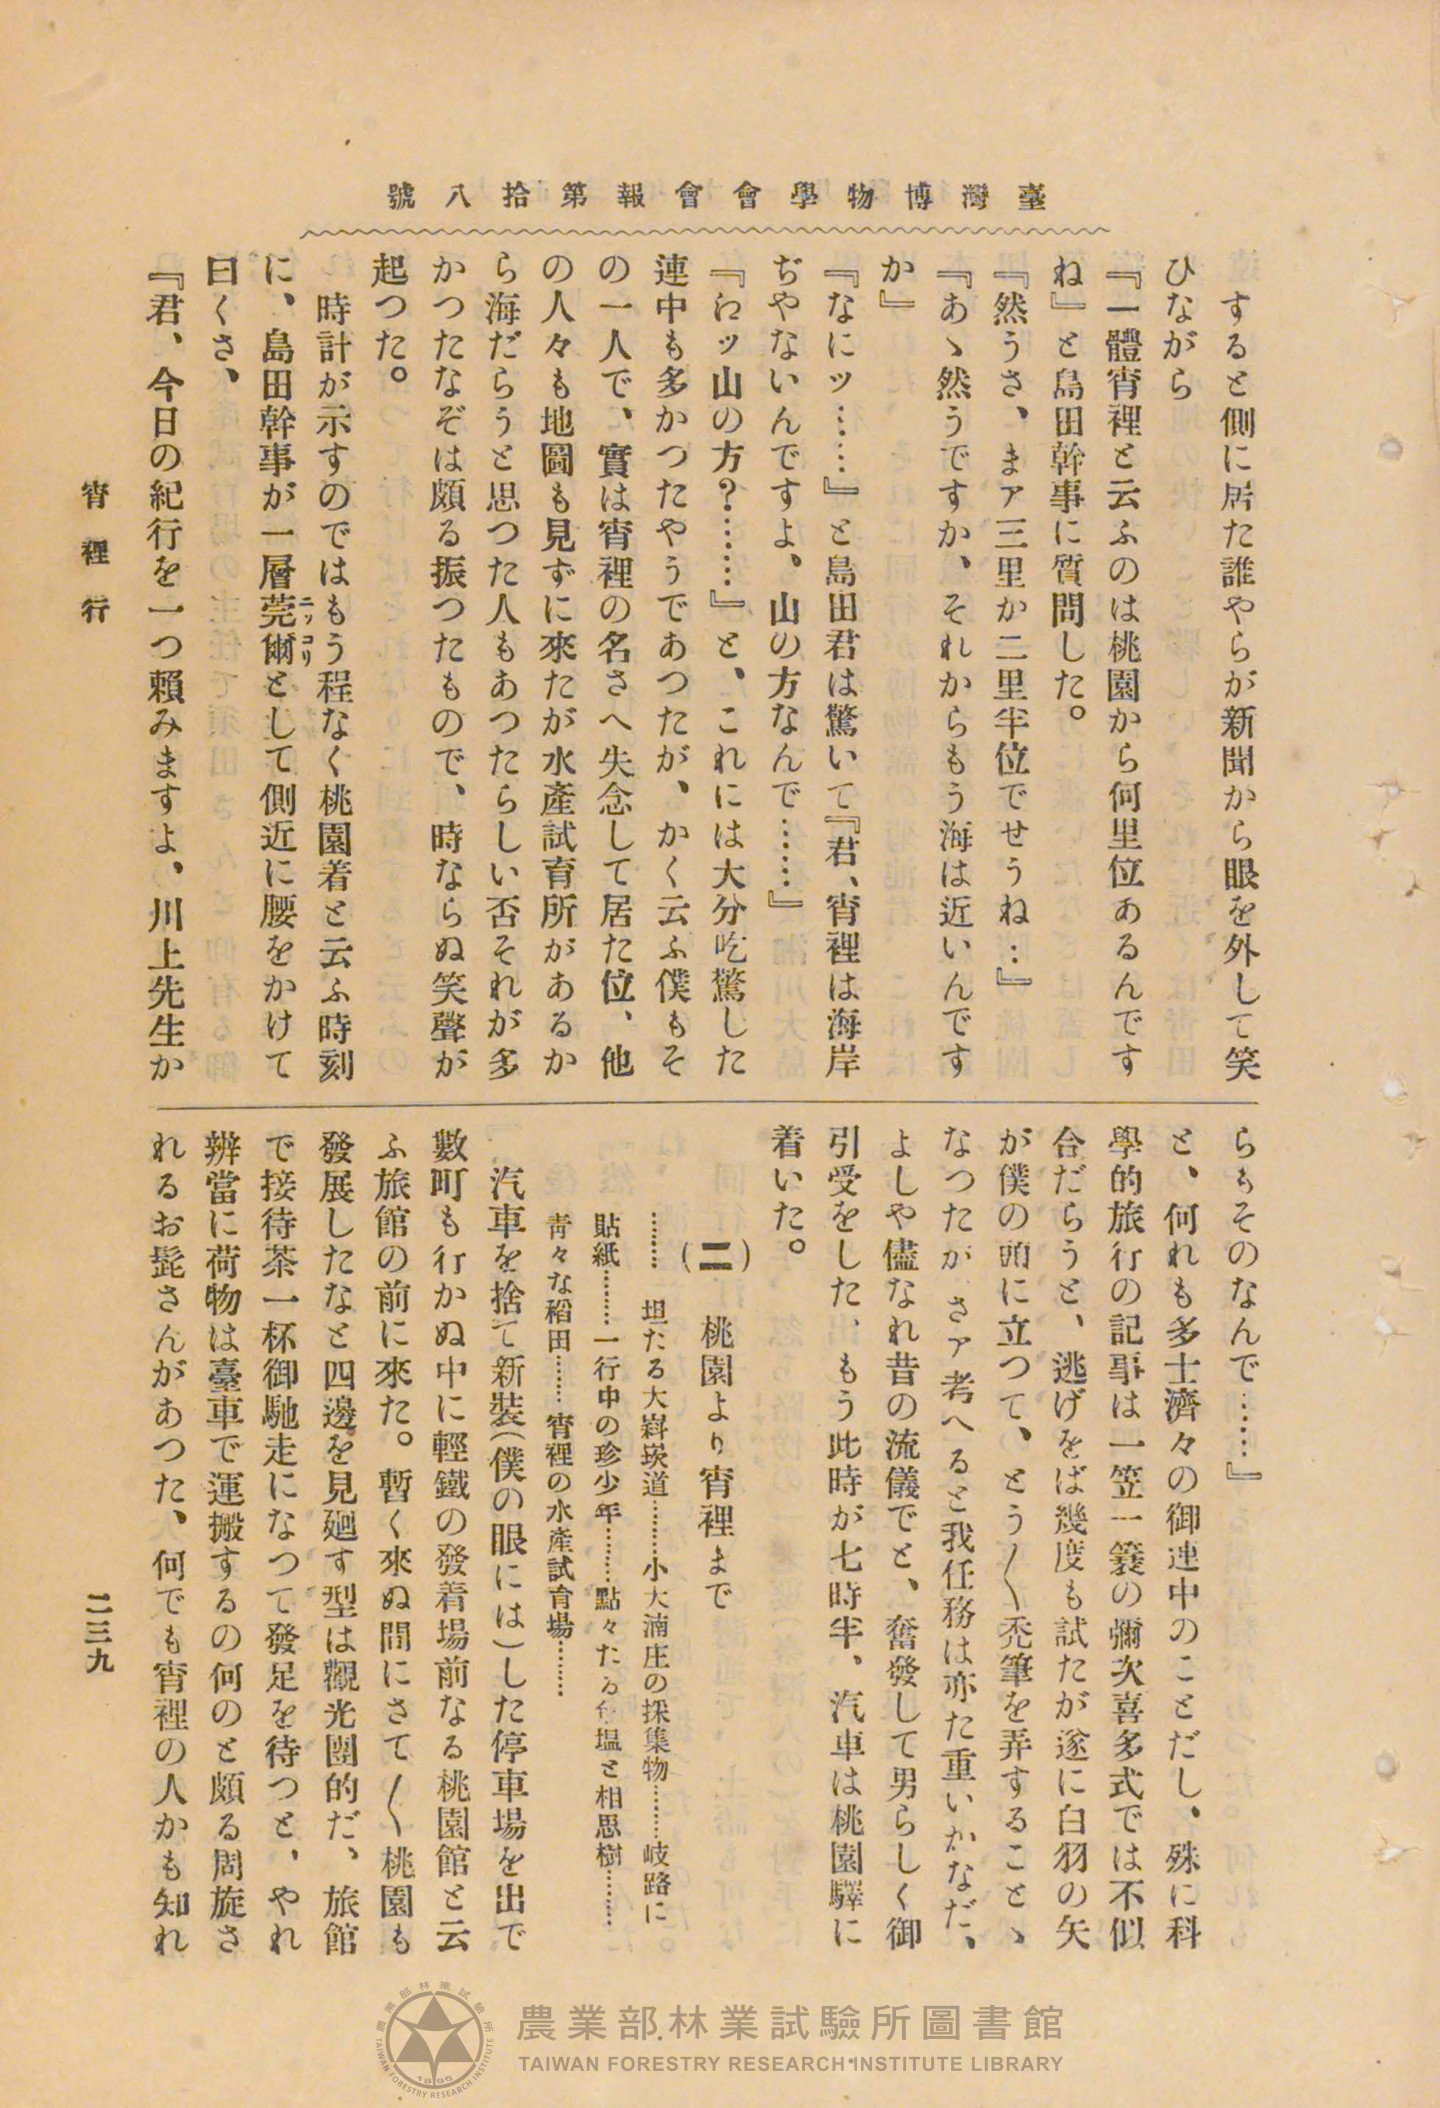 臺灣博物學會會報第拾八號
すると側に居た誰やらが新聞から眼を外して笑
ひながら
『一體宵裡と云ふのは桃園から何里位あるんです
ね』と島田幹事に質問した。
『然うさ、まァ三里か二里半位でせうね‥』
『あゝ然うですか、それからもう海は近いんです
か』
『なにッ……』と島田君は驚いて『君、宵裡は海岸
ぢやないんですよ、山の方なんで……』
『ねッ山の方?……』と、これには大分吃驚した
連中も多かつたやうであつたが、かく云ふ僕もそ
の一人で、實は宵裡の名さへ失念して居た位、他
の人々も地圖も見ずに來たが水產試育所があるか
ら海だらうと思つた人もあつたらしい否それが多
かつたなぞは頗る振つたもので、時ならぬ笑聲が
起つた。
時計が示すのではもう程なく桃園着と云ふ時刻
に、島田幹事が一層莞爾ニッコリとして側近に腰をかけて
曰くさ、
『君、今日の紀行を一つ賴みますよ、川上先生か
らもそのなんで……』
と、何れも多士濟々の御連中のことだし、殊に科
學的旅行の記事は一笠一簑の彌次喜多式では不似
合だらうと、逃げをば幾度も試たが遂に白羽の矢
が僕の頭に立つて、とう〱禿筆を弄することゝ
なつたが、さァ考へると我任務は亦た重いかなだ、
よしや儘なれ昔の流儀でと、奮發して男らしく御
引受をした、もう此時が七時半、汽車は桃園驛に
着いた。
(二) 桃園より宵裡まで
……… 坦たる大嵙崁道………小大湳庄の採集物………岐路に
貼紙………一行中の珍少年………點々たる 塩と相思樹………
靑々な稻田………宵裡の水產試育場………
汽車を捨て新裝(僕の眼には)した停車場を出で
數町も行かぬ中に輕鐵の發着場前なる桃園館と云
ふ旅館の前に來た。暫く來ぬ間にさて〱桃園も
發展したなと四邊を見廻す型は觀光團的だ、旅館
で接待茶一杯御馳走になつて發足を待つと、やれ
辨當に荷物は臺車で運搬するの何のと頗る周旋さ
れるお髭さんがあつた、何でも宵裡の人かも知れ
宵裡行
二三九
農業部林業試驗所圖書館
TAIWAN FORESTRY RESEARCH INSTITUTE LIBRARY
農業部林業試驗所
TAIWAN FORESTRY RESEARCH INSTITUTE
1896